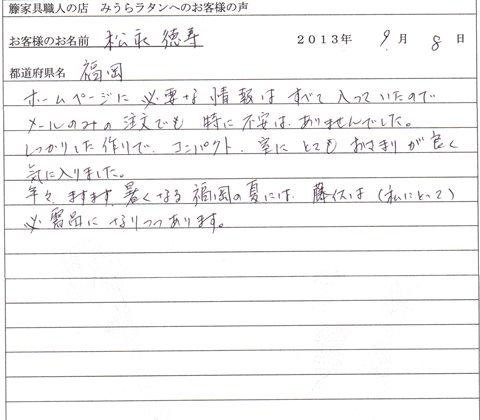 籐家具職人の店 みうらラタンへのお客様の声
お客様のお名前 松永 徳寿 2013年 9月 8日
都道府県名 福岡
ホームページに必要な情報はすべて入っていたので
メールのみの注文でも特に不安はありませんでした。
しっかりした作りで、コンパクト、室にとてもおさまりが良く
気に入りました。
年々、ますます暑くなる福岡の夏には、藤伩は(私にとって)
必需品になりつつあります。